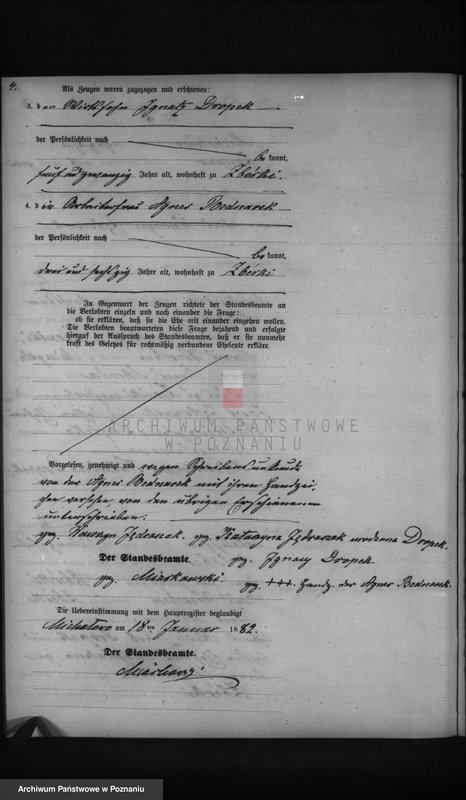 4.
Als Zeugen waren zugezogen und erschienen:
3. d er Wirthssohn Ignatz Dropek
der Persönlichkeit nach
be kannt,
fünf und zwanzig Jahre alt, wohnhaft zu Zbérki.
4. d ie Arbeiterfrau Agnes Bednarek
der Persönlichkeit nach
be kannt,
drei und sechszig Jahre alt, wohnhaft zu Zbérki
In Gegenwart der Zeugen richtete der Standesbeamte an
die Verlobten einzeln und nach einander die Frage:
ob sie erklären, daß sie die Ehe mit einander eingehen wollen.
Die Verlobten beantworteten diese Frage bejahend und erfolgte
hierauf der Ausspruch des Standesbeamten, daß er sie nunmehr
kraft des Gesetzes für rechtmäßig verbundene Eheleute erkläre.
ARCHIWUM PAŃSTWOWE
W POZNANIU
Vorgelesen, genehmigt und wegen Schreibensunkunde
von der Agnes Bednarek mit ihren Handzei-
chen versehen von den übrigen Erschienenen
unterschrieben.
gez. Wawrzyn Jędraszak. gez. Katarzyna Jędraszak urodzona Dropek.
Der Standesbeamte. gez. Ignacy Dropek.
gez. gez. +++ Handz. der Agnes Bednarek.
Die Uebereinstimmung mit dem Hauptregister beglaubigt
am 18 ten Januar 18 82.
Der Standesbeamte.
Archiwum Państwowe w Poznaniu